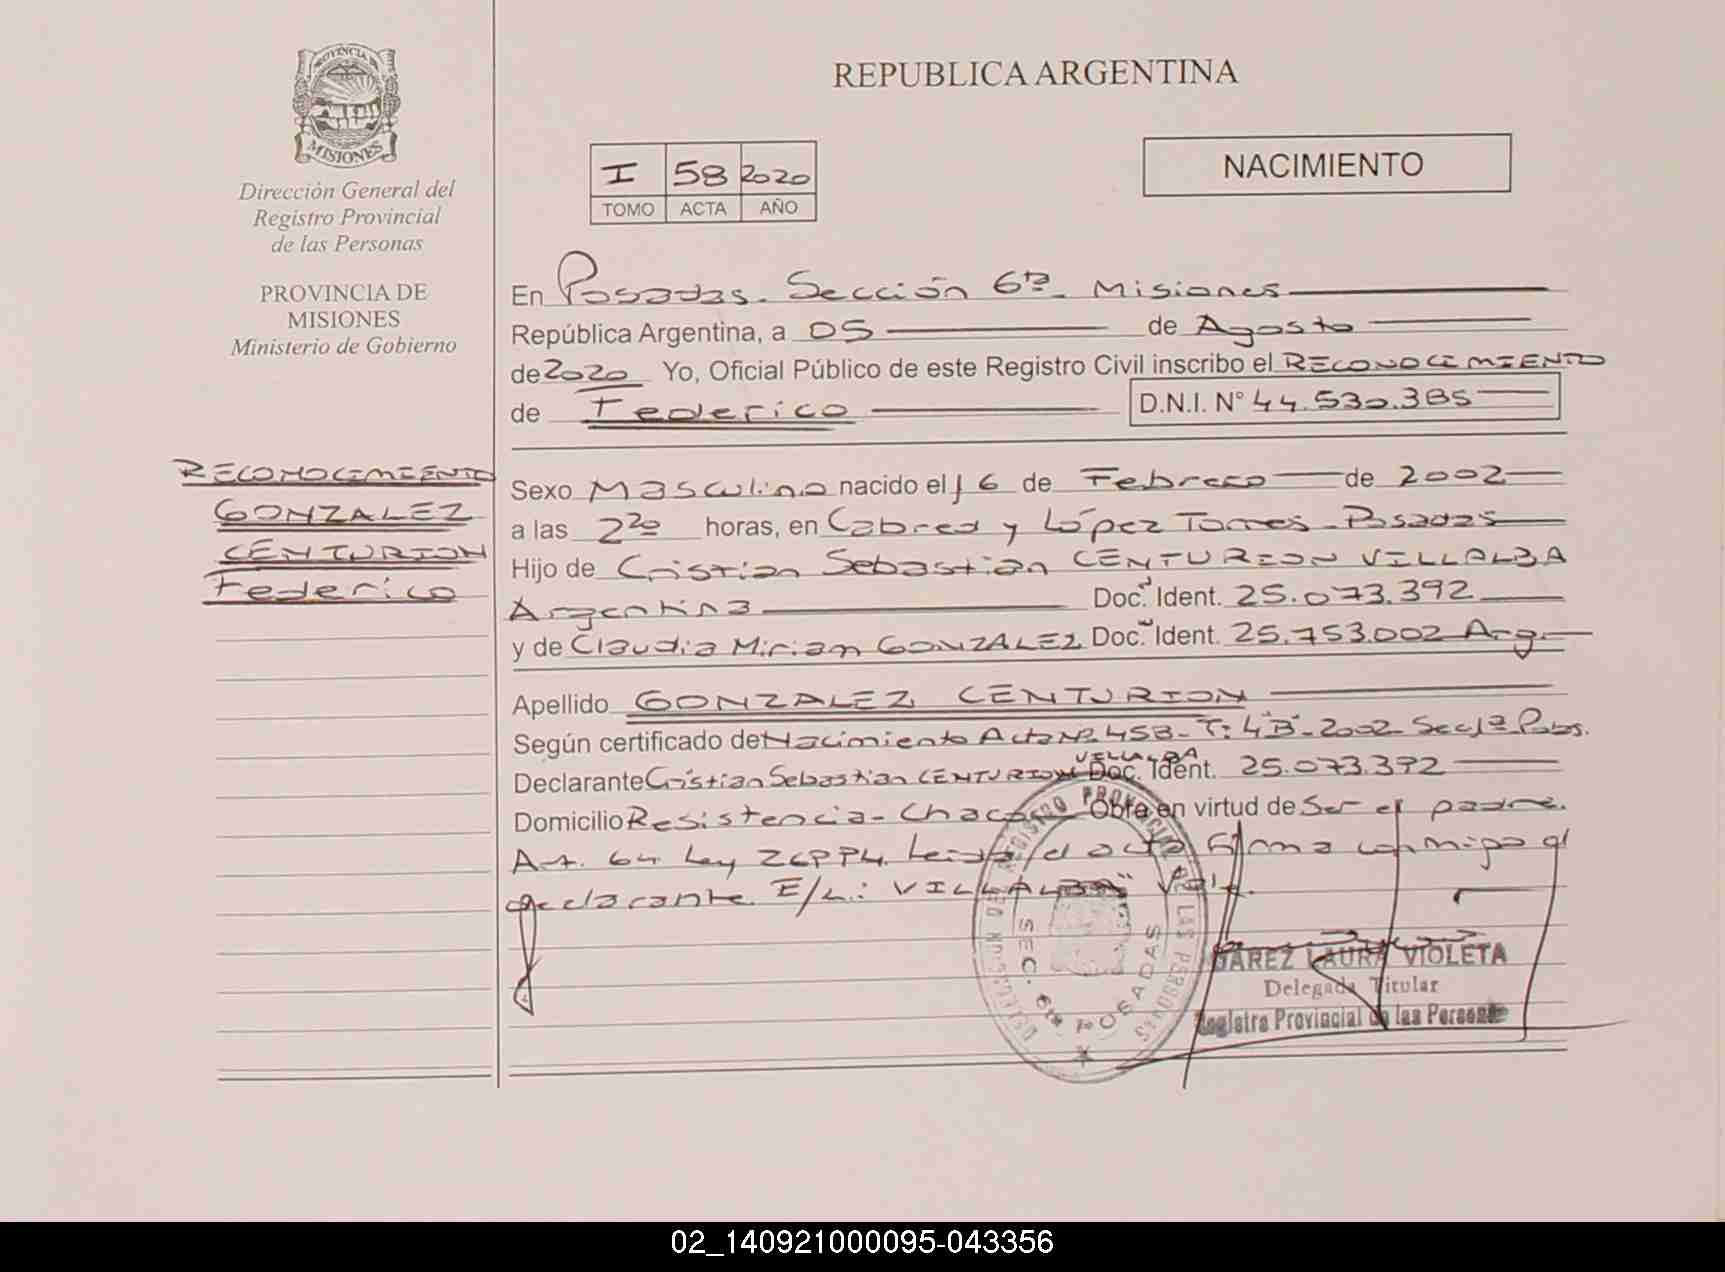 PROVINCIA DE
MISIONES
Dirección General del
Registro Provincial
de las Personas
PROVINCIA DE
MISIONES
Ministerio de Gobierno
RECONOCIMIENTO
GONZALEZ
CENTURION
Federico
REPUBLICA ARGENTINA
I 58 2020
TOMO ACTA AÑO
NACIMIENTO
En Posadas. Sección 6ta Misiones
República Argentina, a 05 de Agosto
de 2020 Yo, Oficial Público de este Registro Civil inscribo el RECONOCIMIENTO
de Federico D.N.I. N° 44.530.385
Sexo Masculino nacido el 16 de Febrero de 2002
a las 2 20 horas, en Cabred y López Torres - Posadas
Hijo de Cristian Sebastian CENTURION VILLALBA
Argentina Doc. Ident. 25.073.392
y de Claudia Miriam GONZALEZ Doc. Ident. 25.753.002 Arg.
Apellido GONZALEZ CENTURION
Según certificado de Nacimiento Acta Nº 458 - T: 4"B" - 2002 - Sec 1ª Pdas.
VILLALBA
Declarante Cristian Sebastian CENTURION Doc. Ident. 25.073.392
Domicilio Resistencia - Chaco Obra en virtud de Ser el padre.
Art. 64 Ley 26994. Leída el acta Firma conmigo el
declarante. E/L.: "VILLALBA" Vale.
REGISTRO PROVINCIAL DE LAS PERSONAS
SEC. 6ta POSADAS
LAURA VIOLETA
Delegada Titular
Registro Provincial de las Personas
02_140921000095-043356